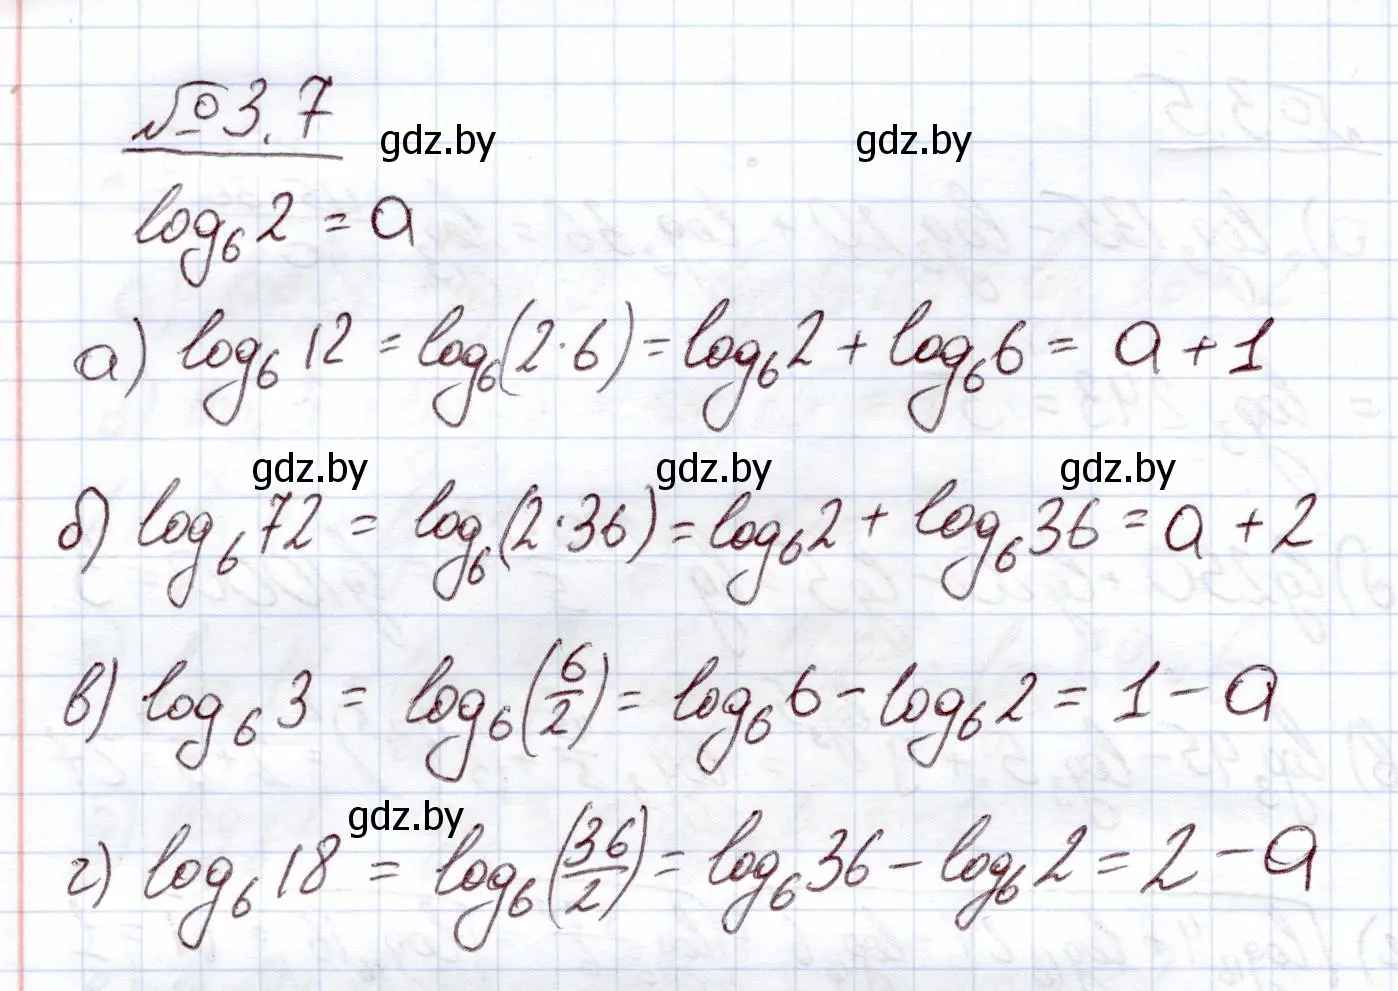 №3.7
gdz.by gdz.by
log₆2 = a
а) log₆12 = log₆(2·6) = log₆2 + log₆6 = a + 1
gdz.by gdz.by gdz.by
б) log₆72 = log₆(2·36) = log₆2 + log₆36 = a + 2
в) log₆3 = log₆(6/2) = log₆6 - log₆2 = 1 - a
gdz.by
г) log₆18 = log₆(36/2) = log₆36 - log₆2 = 2 - a